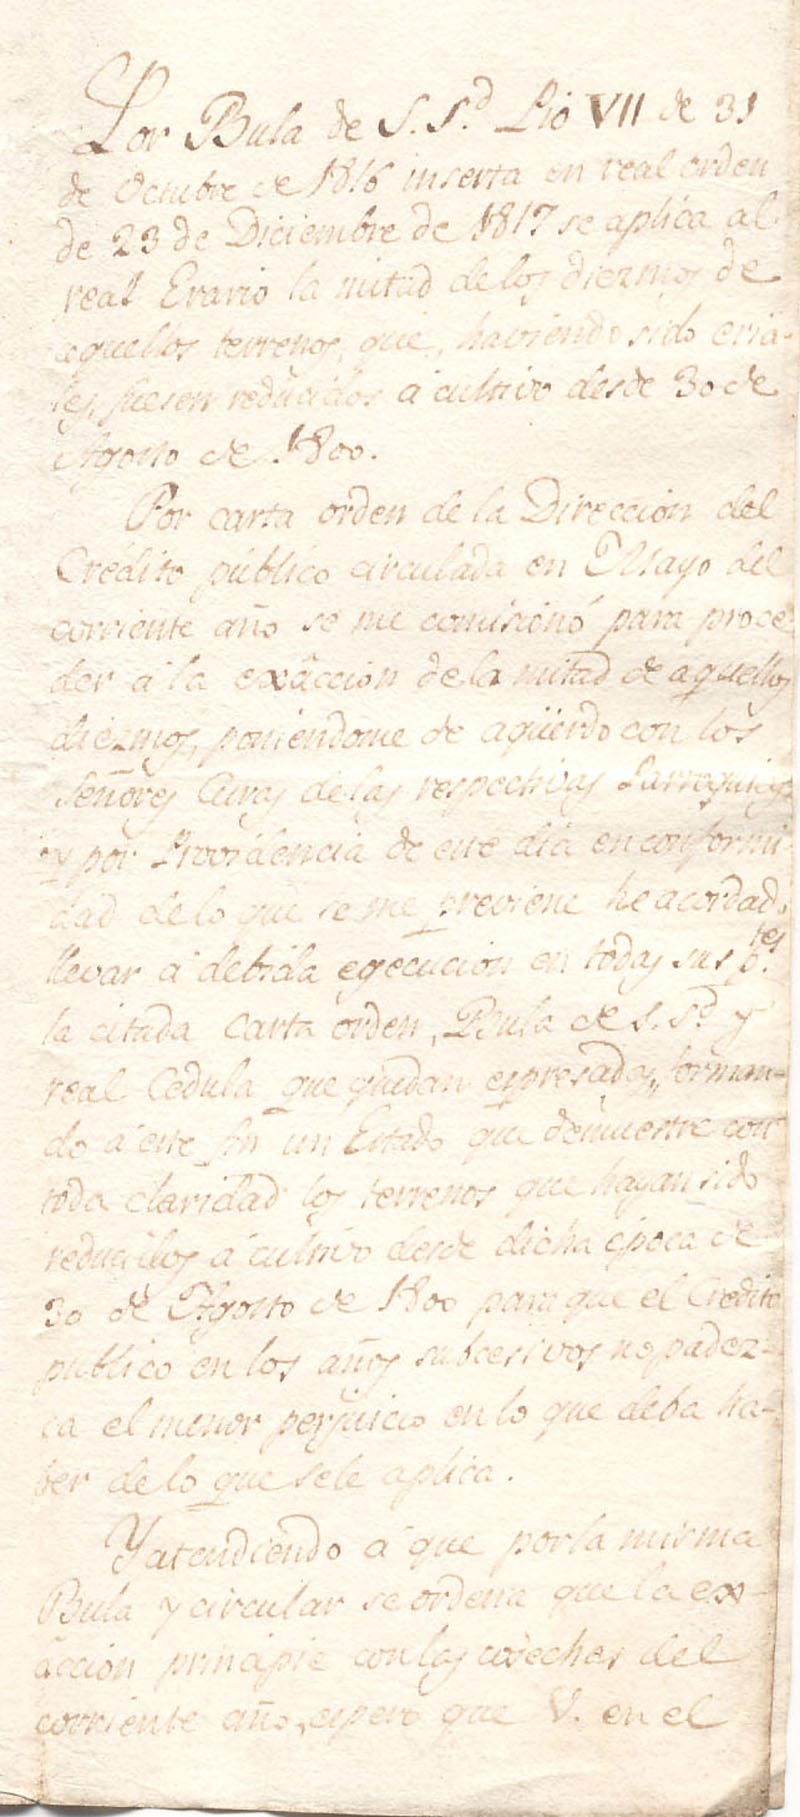 Por Bula de S. S.d Pio VII de 31
de Octubre de 1816 inserta en real orden
de 23 de Diciembre de 1817 se aplica al
real Erario la mitad de los diezmos de
aquellos terrenos, que, haviendo sido eria-
les, fuesen reducidos á cultivo desde 30 de
Agosto de 1800.
Por carta orden de la Direccion del
Crédito público circulada en Mayo del
corriente año se me comisionó para proce-
der á la exâccion de la mitad de aquellos
diezmos, poniendome de agüerdo con los
Señores Curas de las respectivas Parroquias
y por Providencia de este dia en conformi-
dad de lo que se me previene he acordado
llevar á debida egecucion en todas sus p.tes
la citada Carta orden, Bula de S. S.d y
real Cedula que quedan espresadas, forman-
do á este fin un Estado que demuestre con
toda claridad los terrenos que hayan sido
reducidos á cultivo desde dicha época de
30 de Agosto de 1800 para que el Credito
publico en los años subcesivos no padez-
ca el menor perjuicio en lo que deba ha-
ber de lo que se le aplica.
Y atendiendo á que por la misma
Bula y circular se ordena que la ex-
âccion principie con las cosechas del
corriente año, espero que V. en el